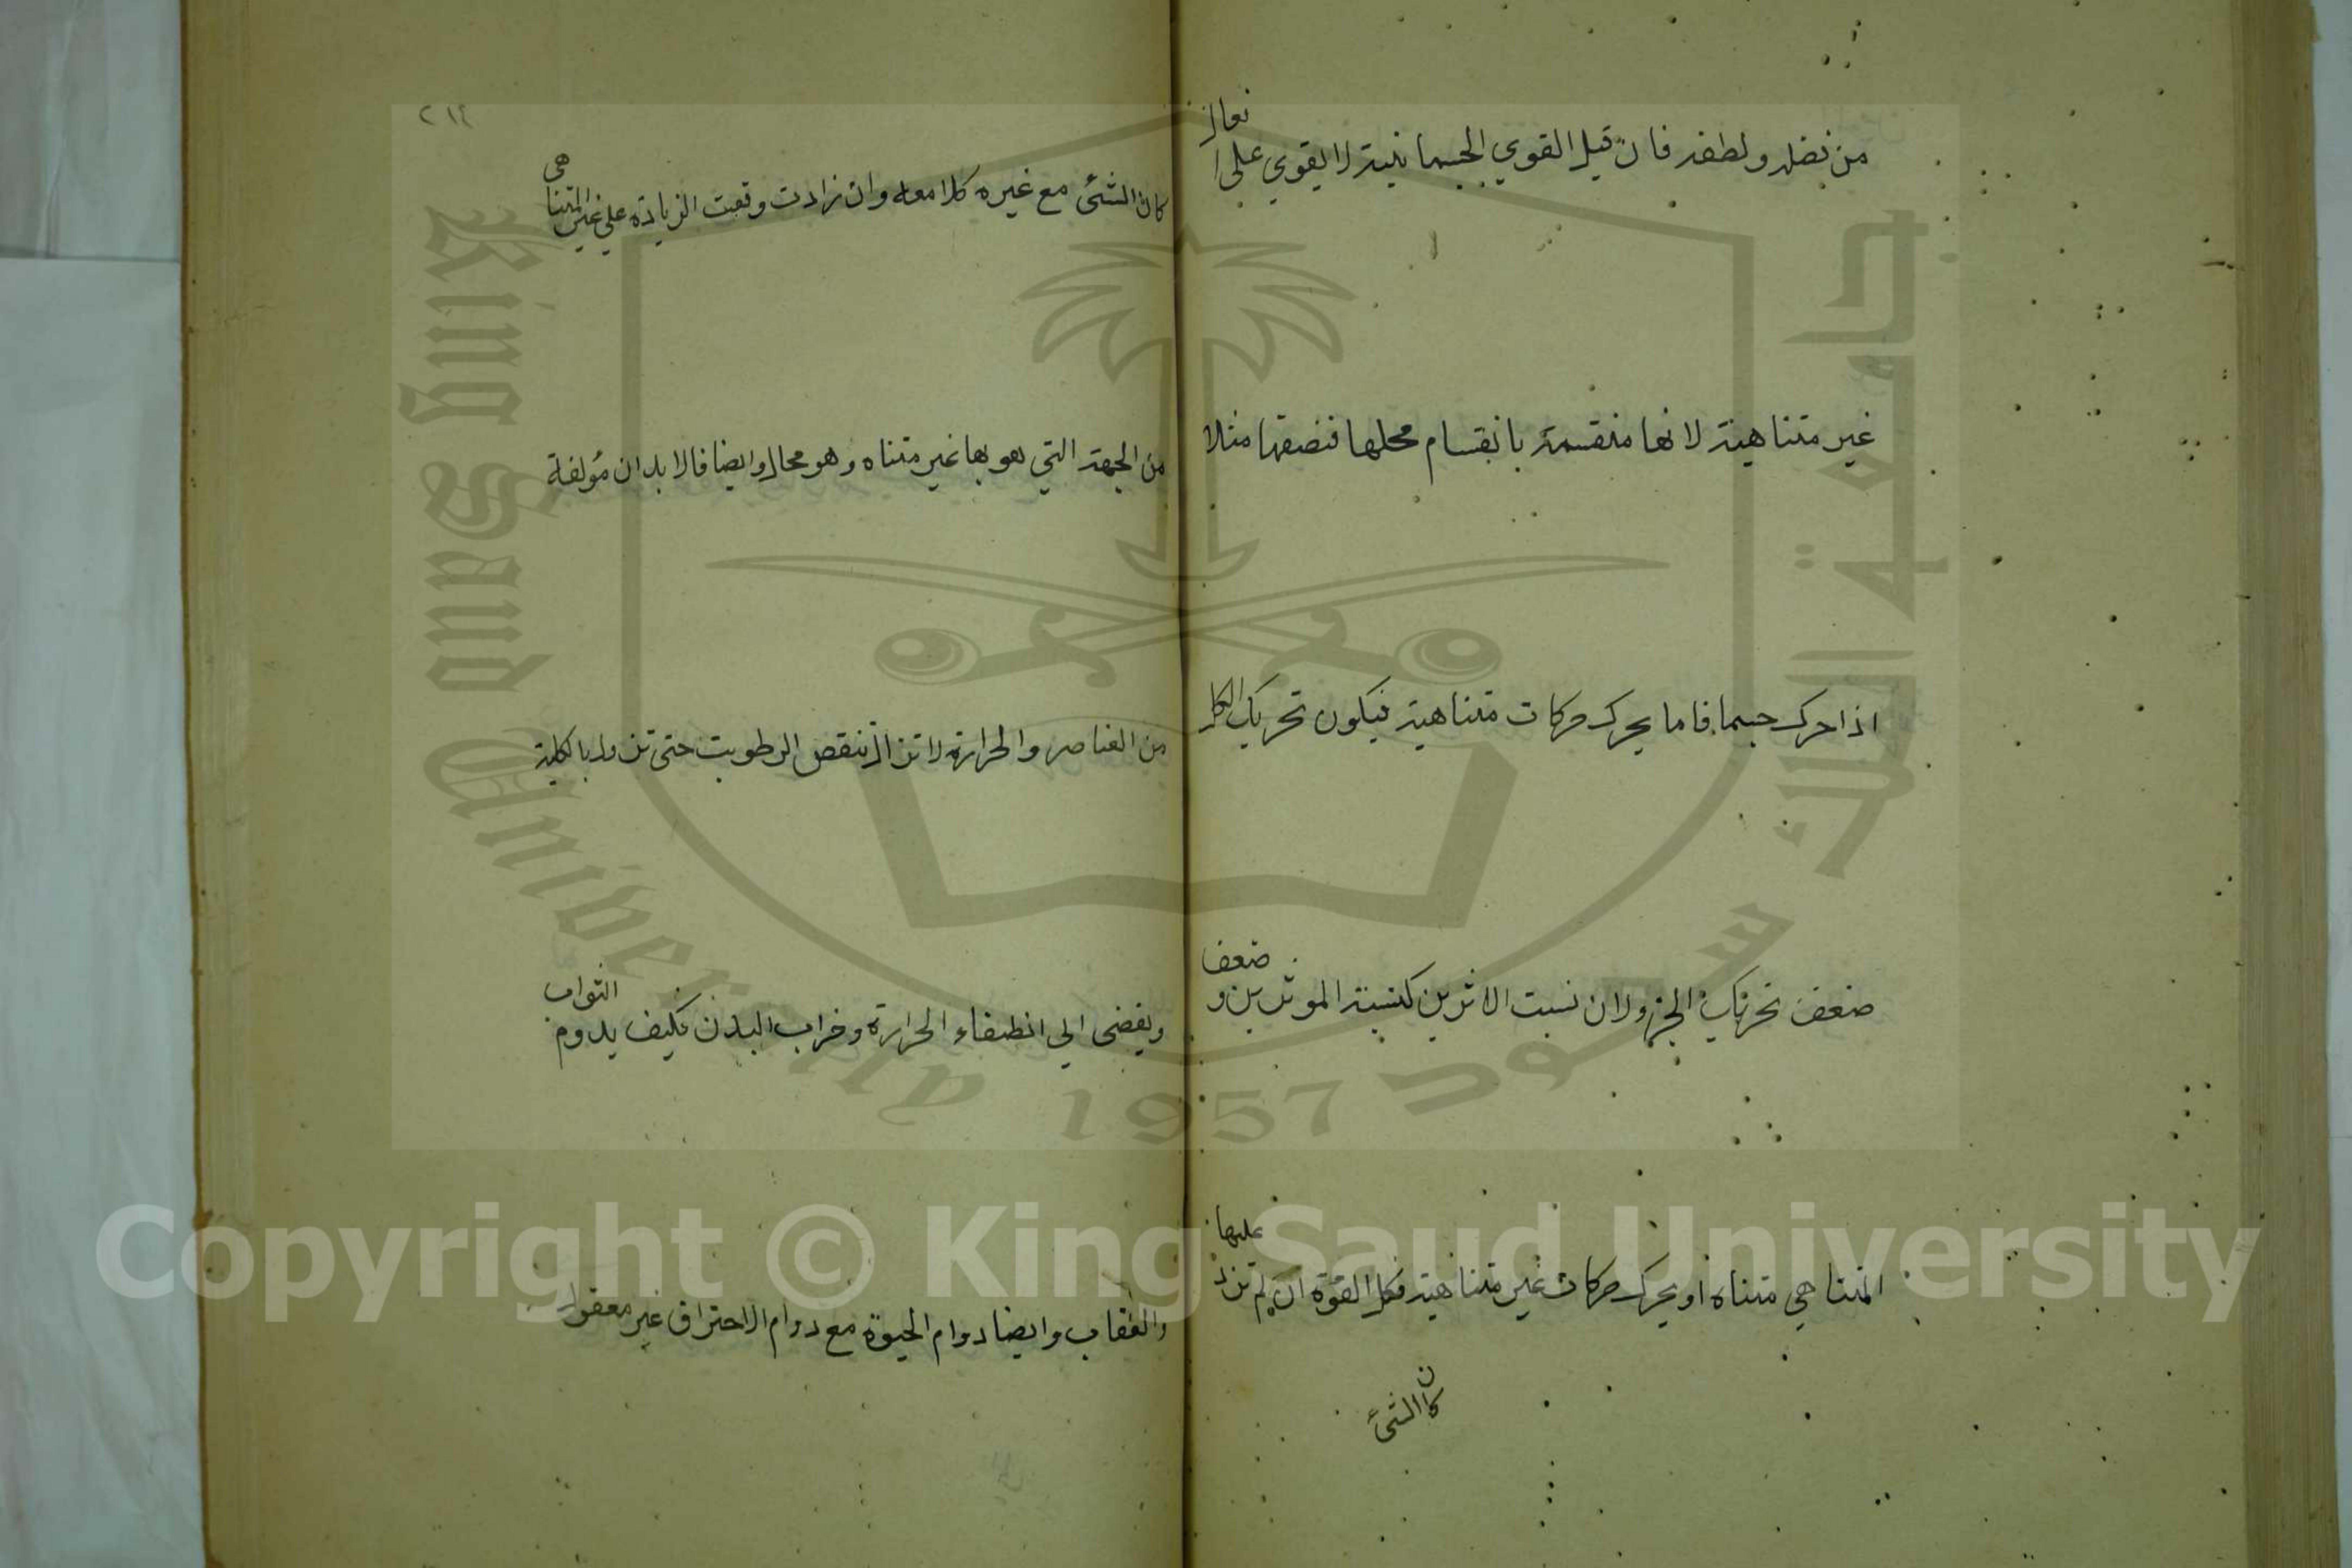 من فضله ولطفه فان قيل القوي الجسمانية لا يقوي علي افعال
غير متناهية لانها منقسمة بانقسام محلها فنصفها مثلا
اذا حرك جسما فاما يحرك حركات متناهية فيكون تحريك الكل
ضعف تحريك الجزء ولان نسبت الاثرين كنسبة الموثرين وضعف
المتناهي متناه او يحرك حركات غير متناهية فكل القوة ان لم تزد عليها
كان الشئ
٢١٤
كان الشئ مع غيره كلا معه وان زادت وقعت الزيادة علي غير المتناهى
من الجهة التي هو بها غير متناه وهو محال وايضا فالابدان مؤلفة
من العناصر والحرارة لا تزال تنقص الرطوبت حتى تزول بالكلية
ويفضى الي انطفاء الحرارة وخراب البدن فكيف يدوم الثواب
والعقاب وايضا دوام الحيوة مع دوام الاحتراق غير معقول
King Saud University
1957
جامعة الملك سعود
Copyright © King Saud University